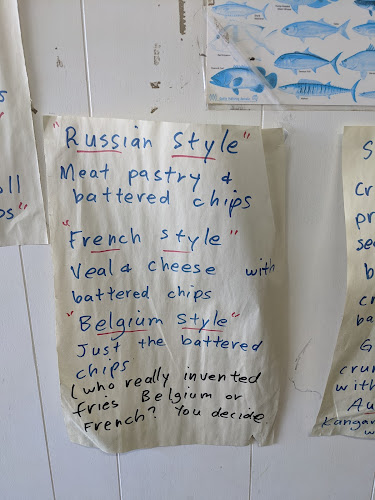 "Russian style"
Meat pastry &
battered chips
"French style"
Veal & cheese with
battered chips
"Belgium Style"
Just the battered
chips
(who really invented
fries Belgium or
French? You decide